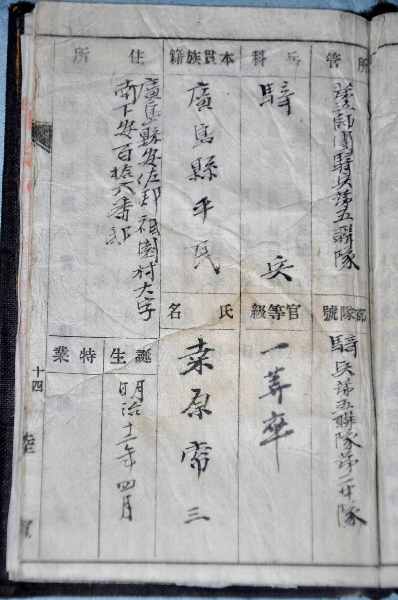 所管
第五師團騎兵第五聯隊
部隊號
騎兵第五聯隊第二中隊
兵科
騎兵
官等級
一等卒
本貫族籍
廣島縣平民
氏名
桒原常三
住所
廣島縣安佐郡祇園村大字
南下安百拾六番邸
誕生
明治十一年四月
特業
十四